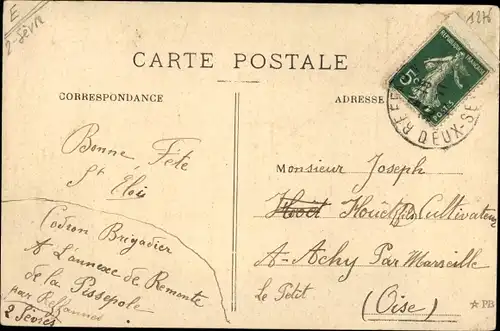 E
2-Sèvr
1276
CARTE POSTALE
CORRESPONDANCE
ADRESSE
REPUBLIQUE FRANÇAISE
5c
POSTES
DEUX-SE
Bonne Fête
St Eloi
Codron Brigadier
A L'annexe de Remonte
de la Pissepole
par Reffannes
2 Sèvres
Monsieur Joseph
Houët fils Cultivateur
A-Achy Par Marseille
Le Petit
(Oise)
PB